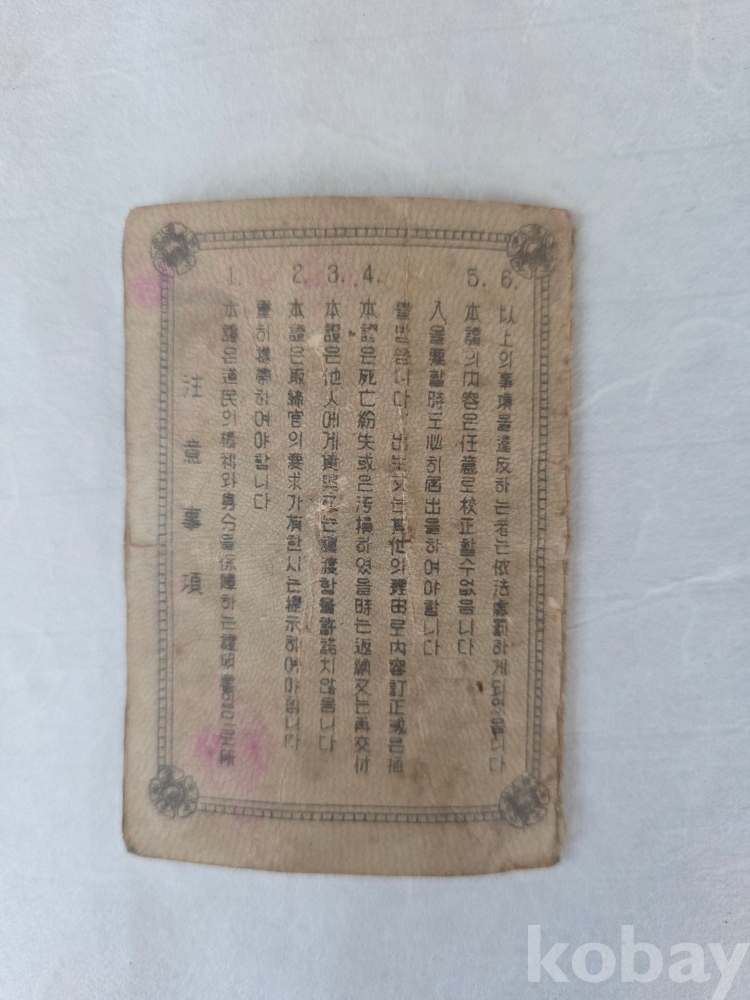 注意事項
1. 本證은道民의福祉와身分을保障하는證明書임으로所
重히携帶하여야합니다
2. 本證은取締官의要求가有한시는提示하여야합니다
3. 本證은他人에게貸與又는讓渡함을許諾치않음니다
4. 本證은死亡紛失或은汚損하였을時는返納又는再交付
出生又는其他의理由로內容訂正或은揷
入을要할時도必히屆出을하여야합니다
5. 本證의內容은任意로校正할수없음니다
6. 以上의事項을違反하는者는依法處罰하게되었음니다
kobay